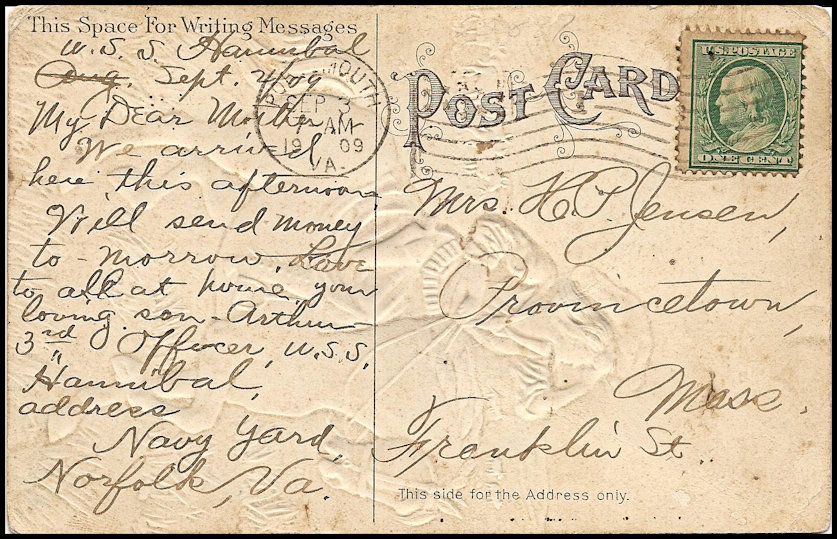 This Space For Writing Messages
U.S.S. Hannibal
Aug. Sept. 2/09
My Dear Mother,
We arrived
here this afternoon
Will send money
to-morrow. Love
to all at home, your
loving son-Arthur
3rd Officer, U.S.S.
Hannibal,
address
Navy Yard,
Norfolk, Va.
PORTSMOUTH
SEP 3
7 AM
19 09
VA.
POST CARD
U.S. POSTAGE
ONE CENT
Mrs. H.P. Jensen,
Provincetown,
Mass.
Franklin St.
This side for the Address only.